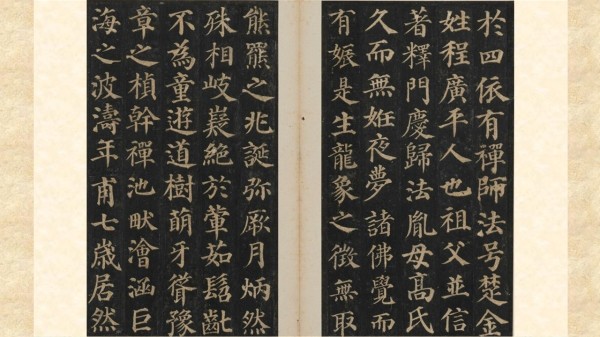 扵四依有禪師法号楚金
姓程廣平人也祖父並信
著釋門慶歸法胤母髙氏
久而無姙夜夢諸佛覺而
有娠是生龍象之徵無取
熊羆之兆誕弥厥月炳然
殊相岐嶷絕於葷茹髫齓
不為童遊道樹萌牙聳豫
章之楨幹禪池畎澮涵巨
海之波濤年甫七歲居然